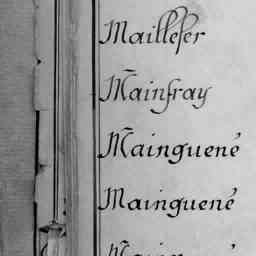 Maillefer
Mainfray
Mainguené
Mainguené